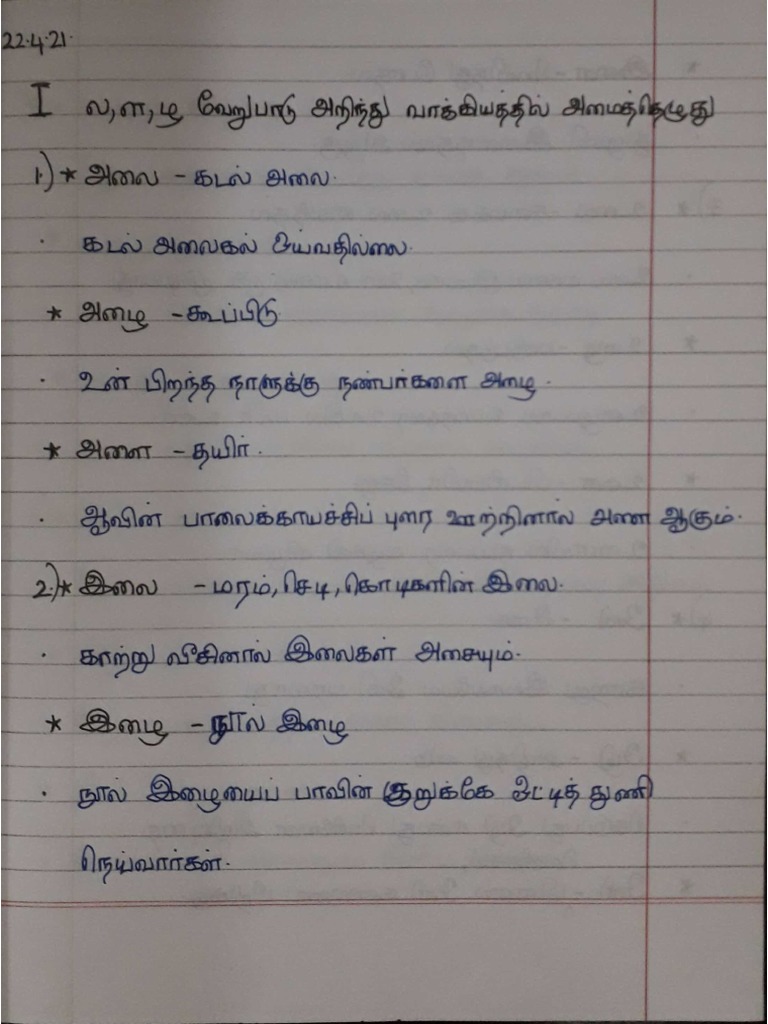 22.4.21.
I ல,ள,ழ வேறுபாடு அறிந்து வாக்கியத்தில் அமைத்தெழுது
1.) * அலை - கடல் அலை.
· கடல் அலைகல் ஓய்வதில்லை.
* அழை - கூப்பிடு
· உன் பிறந்த நாளுக்கு நண்பர்களை அழை.
* அளை - தயிர்.
· ஆவின் பாலைக்காயச்சிப் புரை ஊற்றினால் அளை ஆகும்.
2.) * இலை - மரம், செடி, கொடிகளின் இலை.
· காற்று வீசினால் இலைகள் அசையும்.
* இழை - நூல் இழை
· நூல் இழையைப் பாவின் குறுக்கே ஓட்டித் துணி
நெய்வார்கள்.